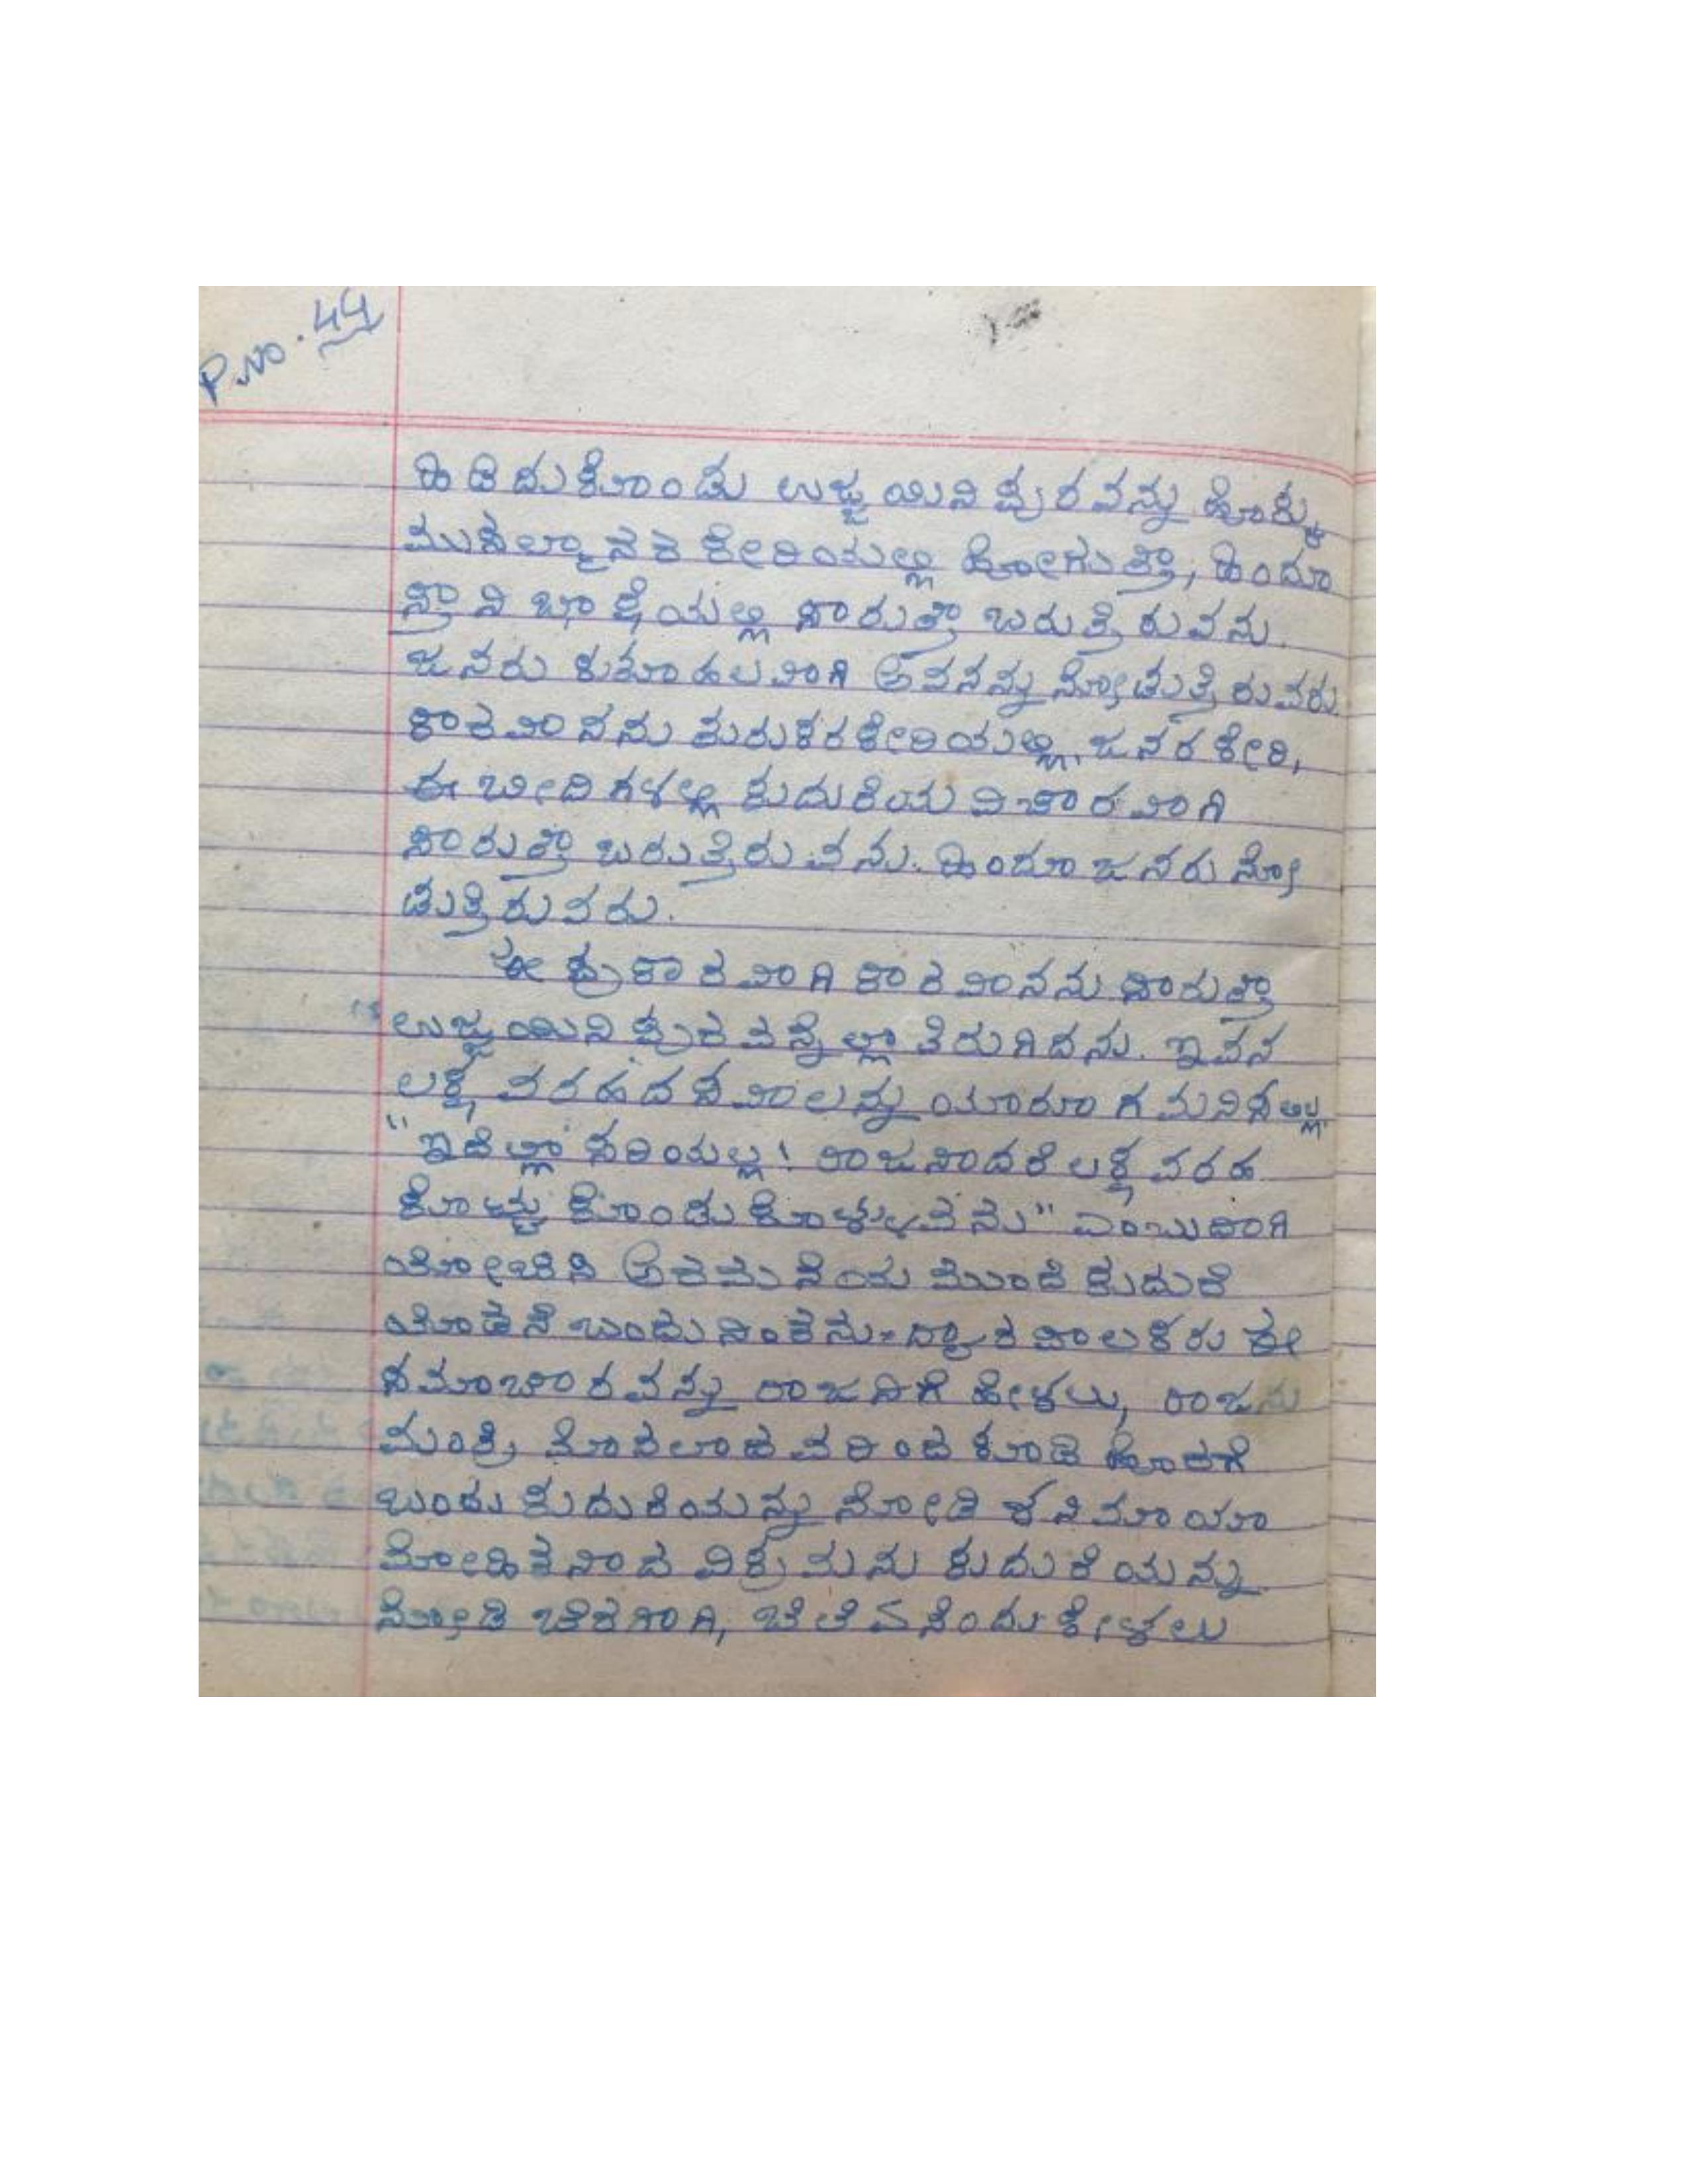 P.No. 44
ಹಿಡಿದುಕೊಂಡು ಉಜ್ಜಯಿನಿ ಪುರವನ್ನು ಹೊಕ್ಕು
ಮುಸಲ್ಮಾನರ ಕೇರಿಯಲ್ಲಿ ಹೋಗುತ್ತಾ, ಹಿಂದೂ
ಸ್ತಾನಿ ಭಾಷೆಯಲ್ಲಿ ಸಾರುತ್ತಾ ಬರುತ್ತಿರುವನು.
ಜನರು ಕುತೂಹಲವಾಗಿ ಅವನನ್ನು ನೋಡುತ್ತಿರುವರು.
ಕಾರವಾನನು ತುರುಕರಕೇರಿಯಲ್ಲಿ, ಜನರ ಕೇರಿ,
ಈ ಬೀದಿಗಳಲ್ಲಿ ಕುದುರೆಯ ವಿಚಾರವಾಗಿ
ಸಾರುತ್ತಾ ಬರುತ್ತಿರುವನು. ಹಿಂದೂ ಜನರು ನೋ
ಡುತ್ತಿರುವರು.
ಈ ಪ್ರಕಾರವಾಗಿ ಕಾರವಾನನು ಸಾರುತ್ತಾ
ಉಜ್ಜಯಿನಿ ಪುರವನ್ನೆಲ್ಲಾ ತಿರುಗಿದನು. ಇವನ
ಲಕ್ಷ ವರಹದ ಸವಾಲನ್ನು ಯಾರೂ ಗಮನಿಸಲಿಲ್ಲ.
"ಇದೆಲ್ಲಾ ಸರಿಯಲ್ಲ! ರಾಜನಾದರೆ ಲಕ್ಷ ವರಹ
ಕೊಟ್ಟು ಕೊಂಡುಕೊಳ್ಳುವನು" ಎಂಬುದಾಗಿ
ಯೋಚಿಸಿ ಅರಮನೆಯ ಮುಂದೆ ಕುದುರೆ
ಯೊಡನೆ ಬಂದು ನಿಂತನು. ದ್ವಾರಪಾಲಕರು ಈ
ಸಮಾಚಾರವನ್ನು ರಾಜನಿಗೆ ಹೇಳಲು, ರಾಜನು
ಮಂತ್ರಿ ಮೊದಲಾದವರಿಂದ ಕೂಡಿ ಹೊರಗೆ
ಬಂದು ಕುದುರೆಯನ್ನು ನೋಡಿ ಶನಿಮಾಯಾ
ಮೋಹಿತನಾದ ವಿಕ್ರಮನು ಕುದುರೆಯನ್ನು
ನೋಡಿ ಬೆರಗಾಗಿ, ಬೆಲೆ ಏನೆಂದು ಕೇಳಲು